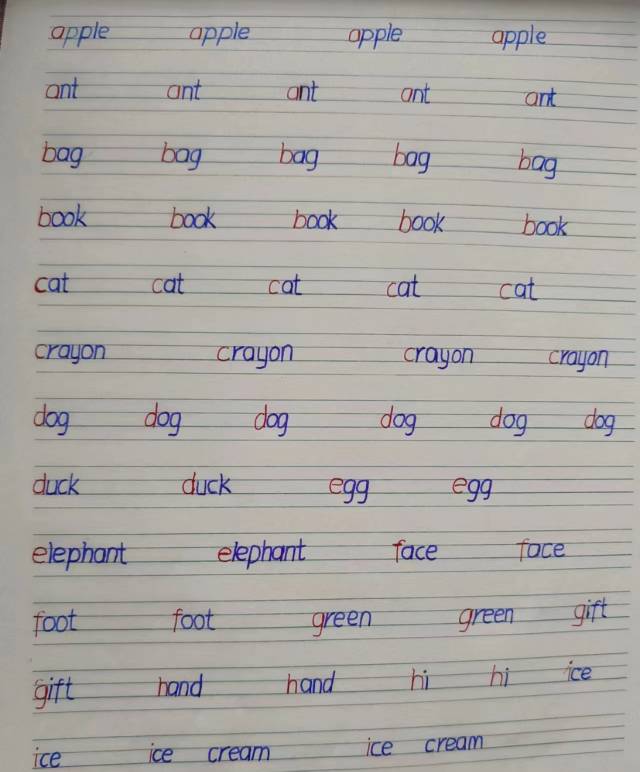 apple apple apple apple
ant ant ant ant ant
bag bag bag bag bag
book book book book book
cat cat cat cat cat
crayon crayon crayon crayon
dog dog dog dog dog dog
duck duck egg egg
elephant elephant face face
foot foot green green gift
gift hand hand hi hi ice
ice ice cream ice cream